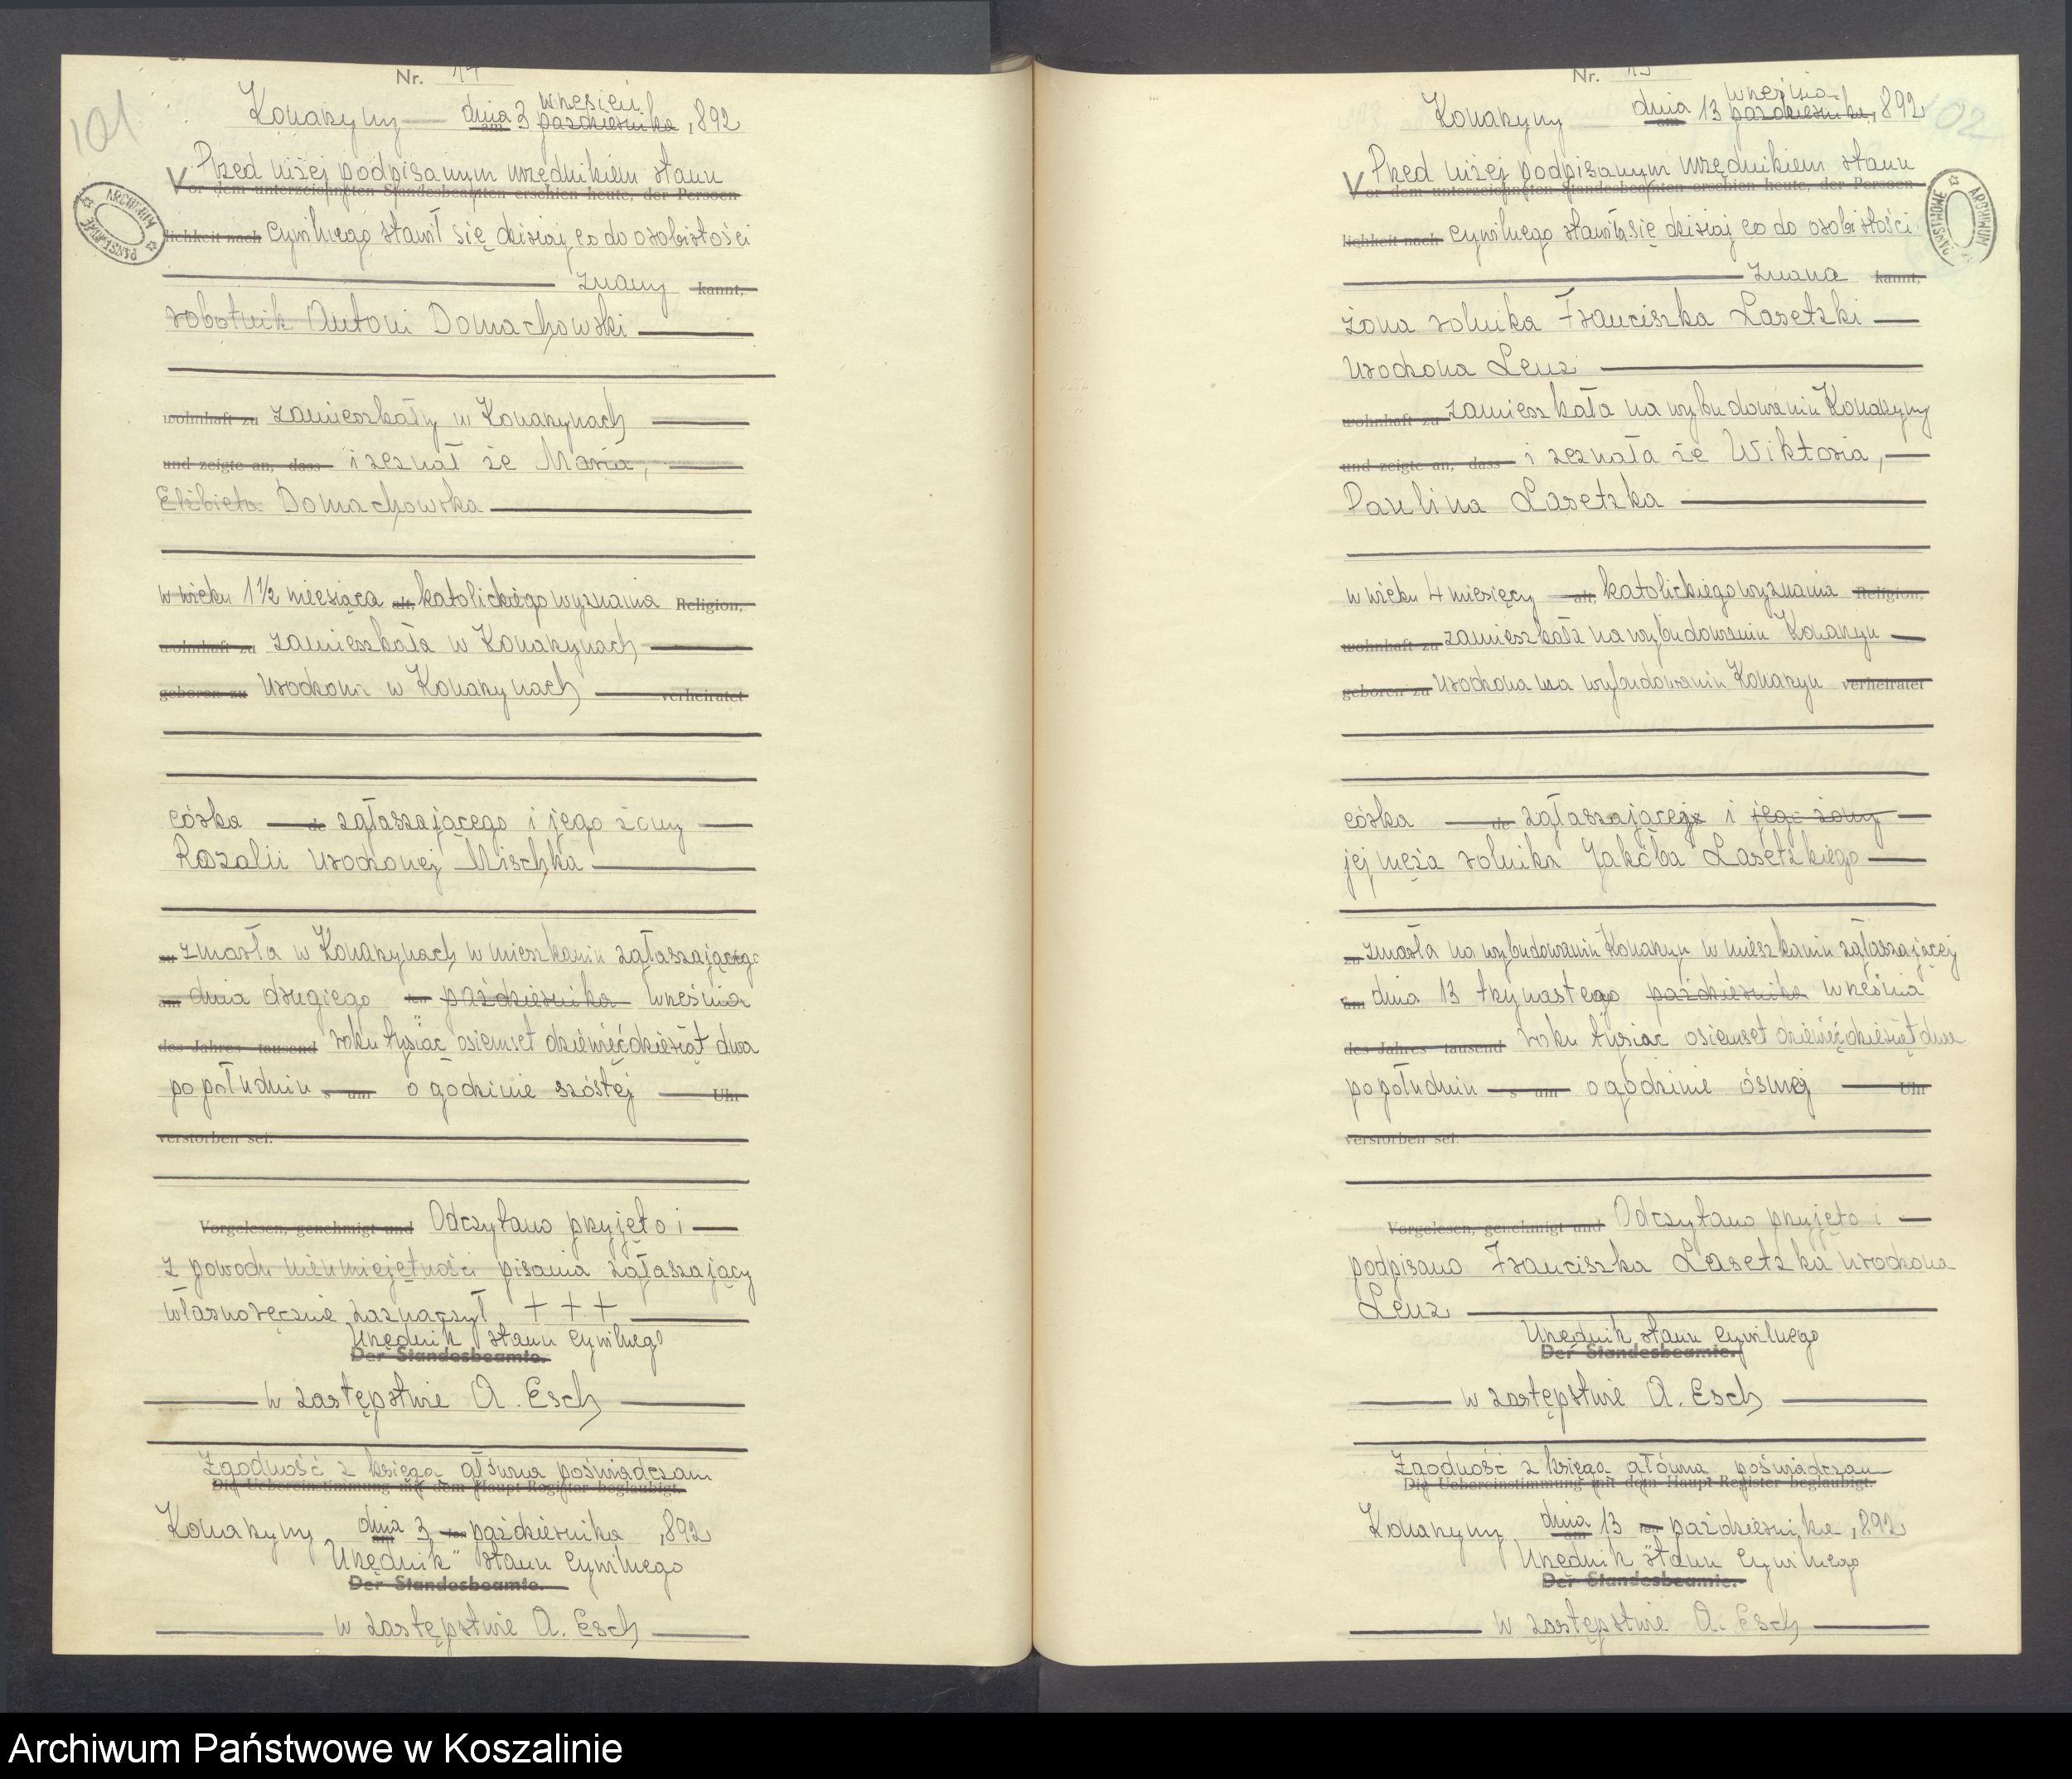 101
Nr. 14
Konarzyny dnia am 3 wrzesień października 1892
Przed niżej podpisanym urzędnikiem stanu
Vor dem unterzeichneten Standesbeamten erschien heute, der Persoen
lichkeit nach cywilnego stawił się dzisiaj co do osobistości
znany kannt,
robotnik Antoni Domachowski
wohnhaft zu zamieszkały w Konarzynach
und zeigte an, dass i zeznał że Maria,
Elżbieta Domachowska
w wieku 1 1/2 miesiąca alt, katolickiego wyznania Religion,
wohnhaft zu zamieszkała w Konarzynach
geboren zu urodzona w Konarzynach verheiratet
córka de zgłaszającego i jego żony
Rozalii urodzonej Mischka
zu zmarła w Konarzynach w mieszkaniu zgłaszającego
am dnia drugiego ten października września
des Jahres tausend roku tysiąc osiemset dziewięćdziesiąt dwa
po południu s um o godzinie szóstej Uhr
verstorben sei.
Vorgelesen, genehmigt und Odczytano przyjęto i
z powodu nieumiejętności pisania zgłaszający
własnoręcznie zaznaczył + + +
Urzędnik stanu cywilnego
Der Standesbeamte.
w zastępstwie A. Esch
Zgodność z księgą główną poświadczam
Die Uebereinstimmung mit dem Haupt-Register beglaubigt.
Konarzyny dnia am 3 ten października 1892
Urzędnik stanu cywilnego
Der Standesbeamte.
w zastępstwie A. Esch
ARCHIWUM PAŃSTWOWE
102
Nr. 15
Konarzyny dnia am 13 września października 1892
Przed niżej podpisanym urzędnikiem stanu
Vor dem unterzeichneten Standesbeamten erschien heute, der Persoen
lichkeit nach cywilnego stawiła się dzisiaj co do osobistości
znana kannt,
żona rolnika Franciszka Lasetzki
urodzona Lenz
wohnhaft zu zamieszkała na wybudowaniu Konarzyny
und zeigte an, dass i zeznała że Wiktoria,
Paulina Lasetzka
w wieku 4 miesięcy alt, katolickiego wyznania Religion,
wohnhaft zu zamieszkała na wybudowaniu Konarzyn
geboren zu urodzona na wybudowaniu Konarzyn verheiratet
córka de zgłaszającej i jego żony
jej męża rolnika Jakóba Lasetzkiego
zu zmarła na wybudowaniu Konarzyn w mieszkaniu zgłaszającej
am dnia 13 trzynastego października września
des Jahres tausend roku tysiąc osiemset dziewięćdziesiąt dwa
po południu s um o godzinie ósmej Uhr
verstorben sei.
Vorgelesen, genehmigt und Odczytano przyjęto i
podpisano Franciszka Lasetzka urodzona
Lenz
Urzędnik stanu cywilnego
Der Standesbeamte.
w zastępstwie A. Esch
Zgodność z księgą główną poświadczam
Die Uebereinstimmung mit dem Haupt-Register beglaubigt.
Konarzyny dnia am 13 ten października 1892
Urzędnik stanu cywilnego
Der Standesbeamte.
w zastępstwie A. Esch
ARCHIWUM PAŃSTWOWE
Archiwum Państwowe w Koszalinie